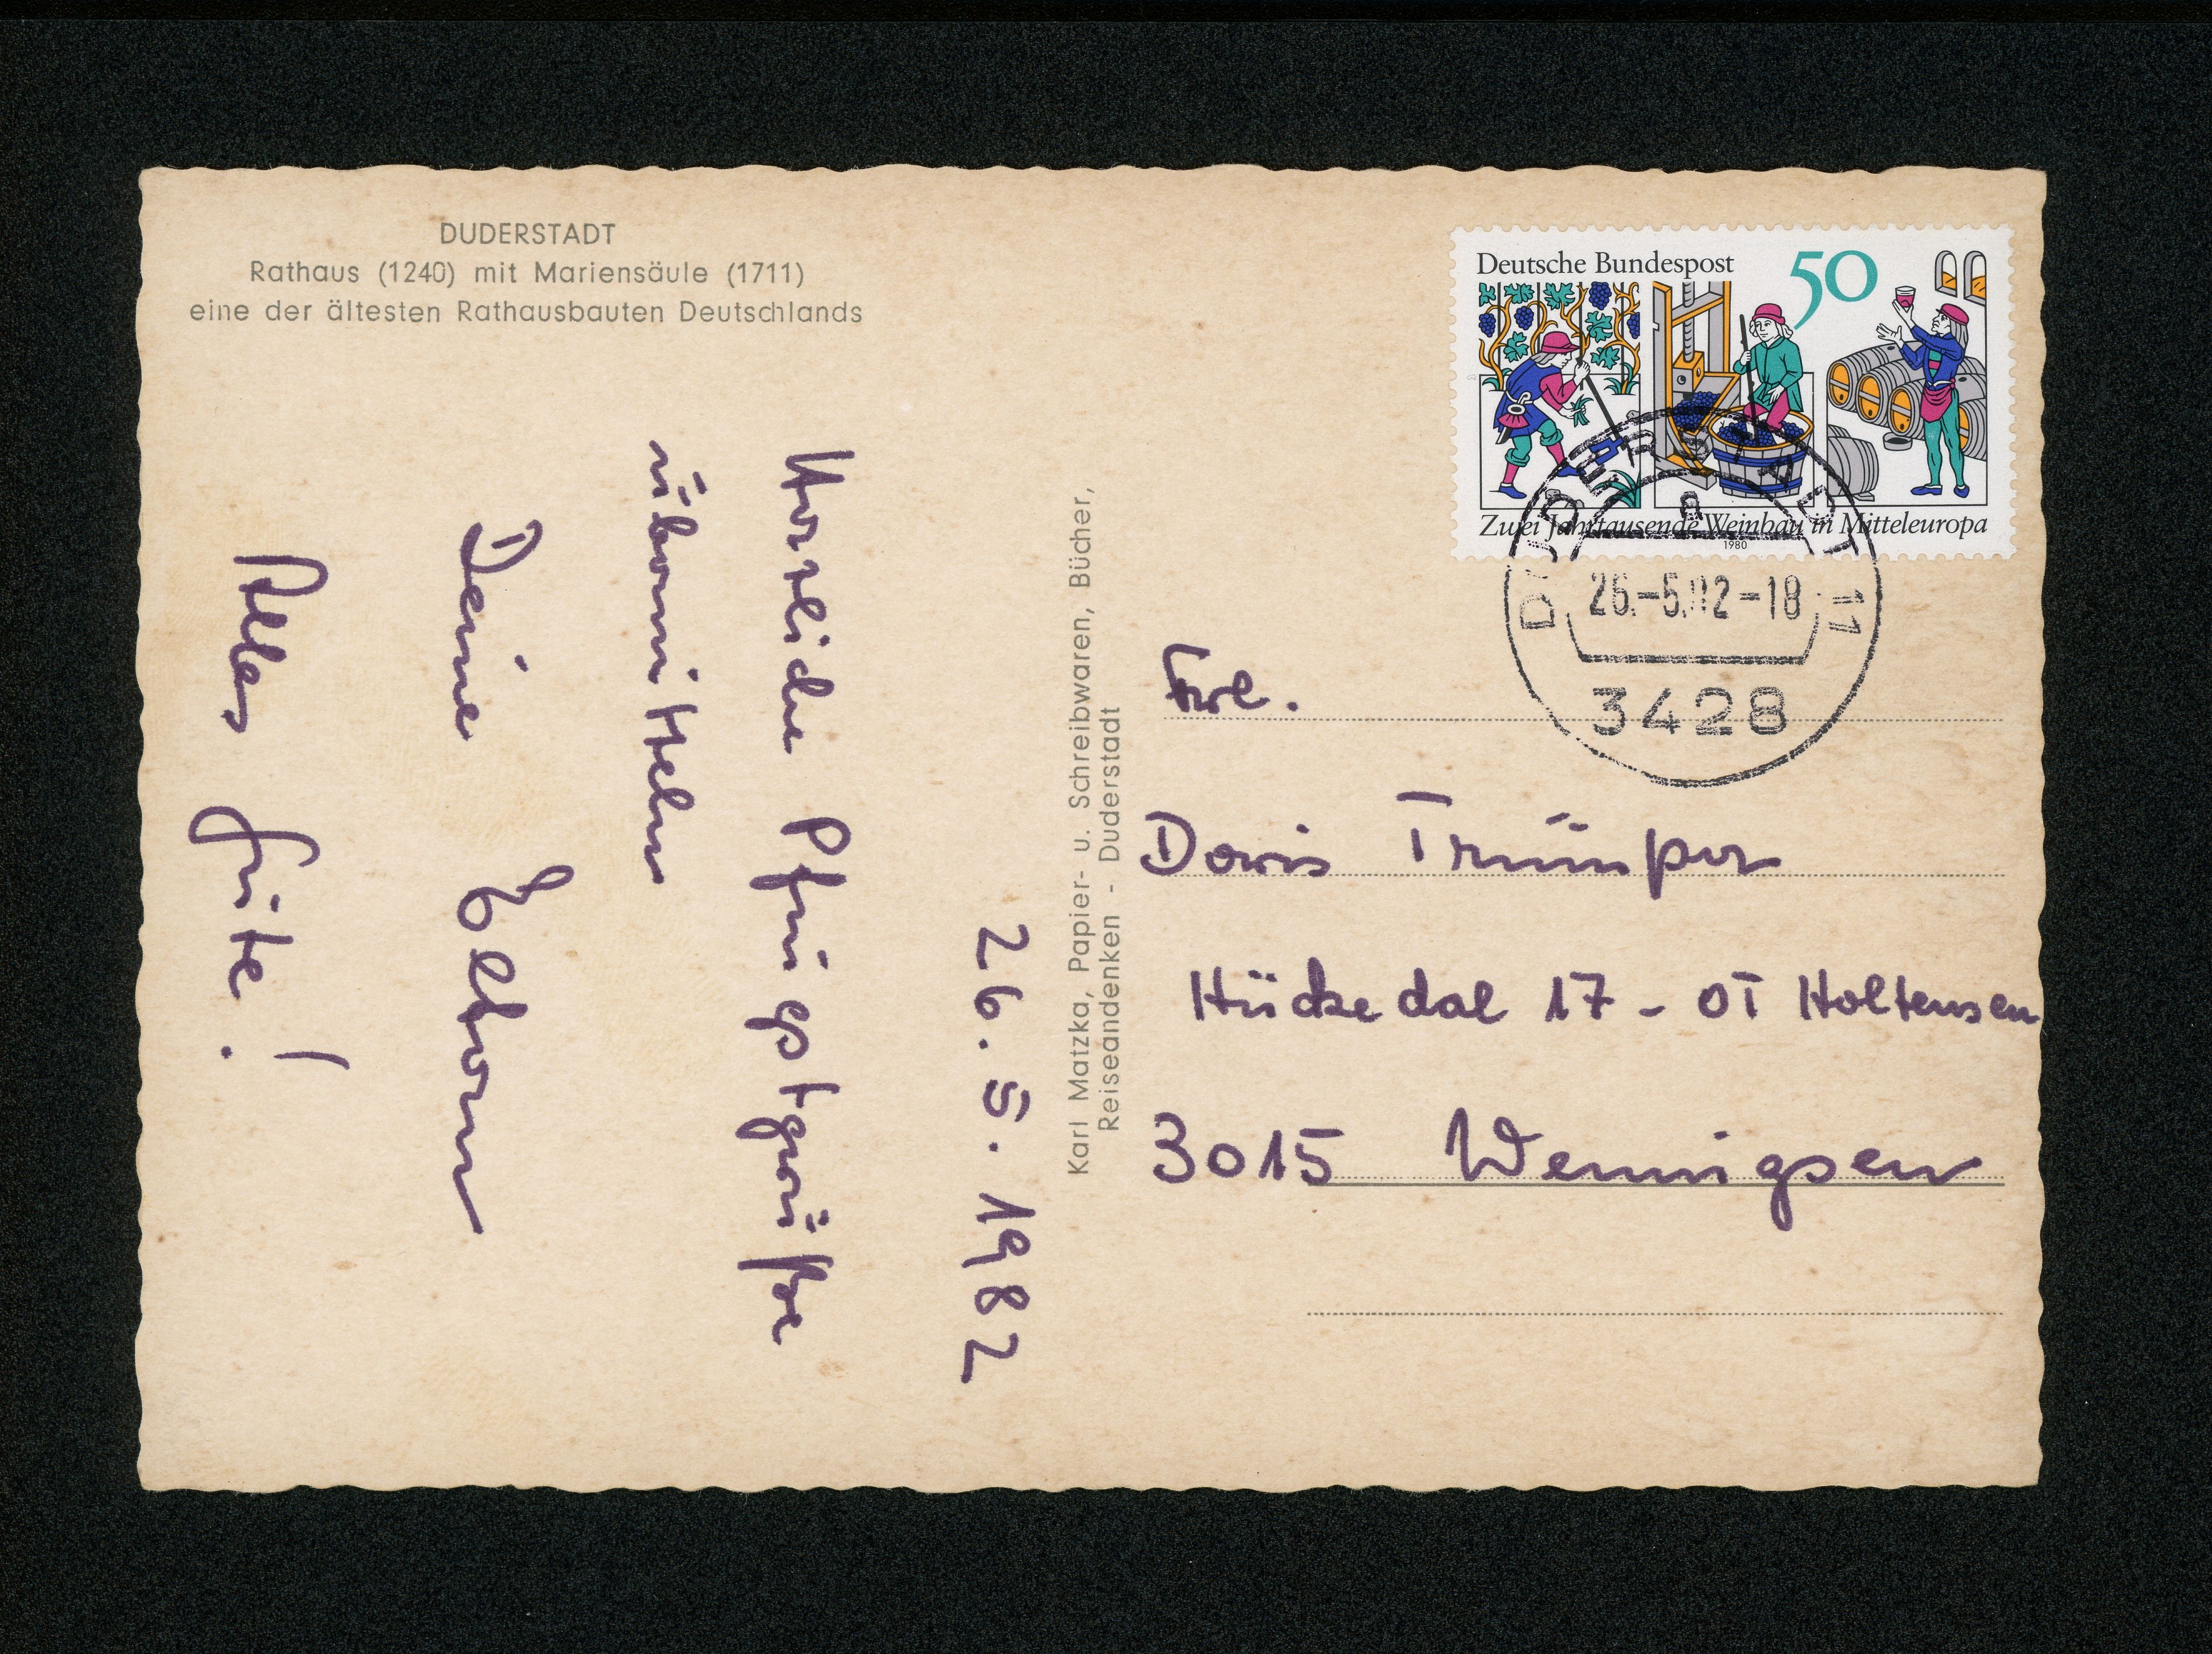 DUDERSTADT
Rathaus (1240) mit Mariensäule (1711)
eine der ältesten Rathausbauten Deutschlands
26.5.1982
Herzliche Pfingstgrüße
übermitteln
Deine Eltern
Alles Gute!
Karl Matzka, Papier- u. Schreibwaren, Bücher,
Reiseandenken - Duderstadt
Deutsche Bundespost 50
Zwei Jahrtausende Weinbau in Mitteleuropa
1980
DUDERSTADT 11
a
26.-5.82-18
3428
Frl.
Doris Trümper
Hückedal 17 - OT Holtensen
3015 Wennigsen